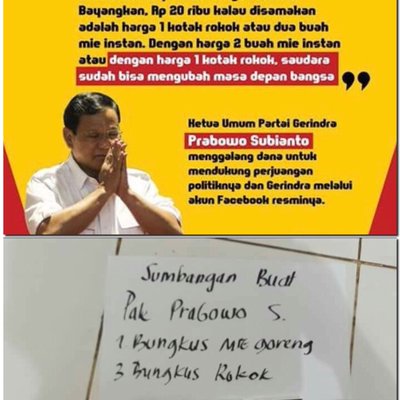 Bayangkan, Rp 20 ribu kalau disamakan
adalah harga 1 kotak rokok atau dua buah
mie instan. Dengan harga 2 buah mie instan
atau dengan harga 1 kotak rokok, saudara
sudah bisa mengubah masa depan bangsa”
Ketua Umum Partai Gerindra
Prabowo Subianto
menggalang dana untuk
mendukung perjuangan
politiknya dan Gerindra melalui
akun Facebook resminya.
Sumbangan Buat
Pak Prabowo S.
1 Bungkus MIE goreng
3 Bungkus Rokok